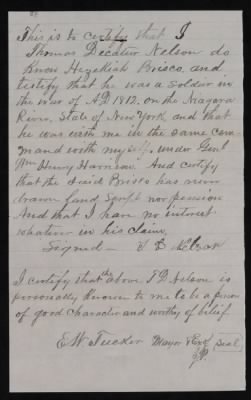 This is to certify that I
Thomas Decatur Nelson do
know Hezekiah Brisco and
testify that he was a Soldier in
the war of A.D 1812. on the Niagara
River, State of New York and that
he was with me in the same com
mand with myself. under Genl
Wm Henry Harrison. And certify
that the said Brisco has never
drawn Land Script nor pension
And that I have no interest
whatever in his claim,
Signed - T D Nelson
I certify that the above T D Nelson is
personally known to me to be a person
of good character and worthy of belief
E W Tucker Mayor & Exof Seal
J.P.